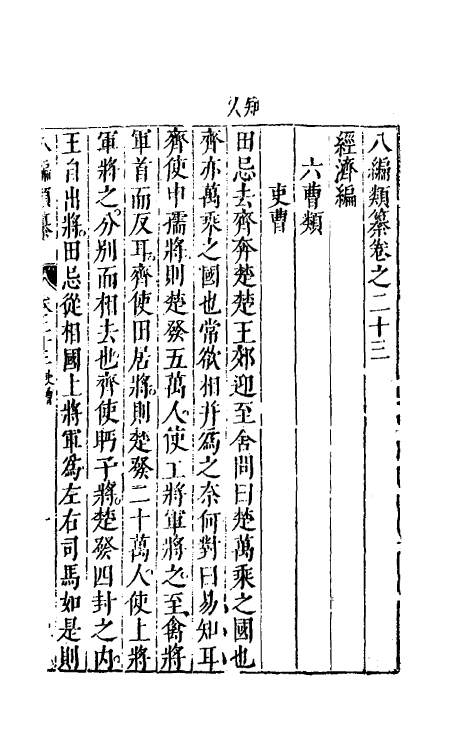 知人
八編類纂卷之二十三
經濟編
六曹類
吏曹
田忌去齊奔楚楚王郊迎至舍問曰楚萬乘之國也
齊亦萬乘之國也常欲相并為之奈何對曰易知耳
齊使申孺將則楚發五萬人使上將軍將之至禽將
軍首而反耳齊使田居將則楚發二十萬人使上將
軍將之分別而相去也齊使眄子將楚發四封之內
王自出將田忌從相國上將軍為左右司馬如是則
八編類纂 卷二十三吏曹 一